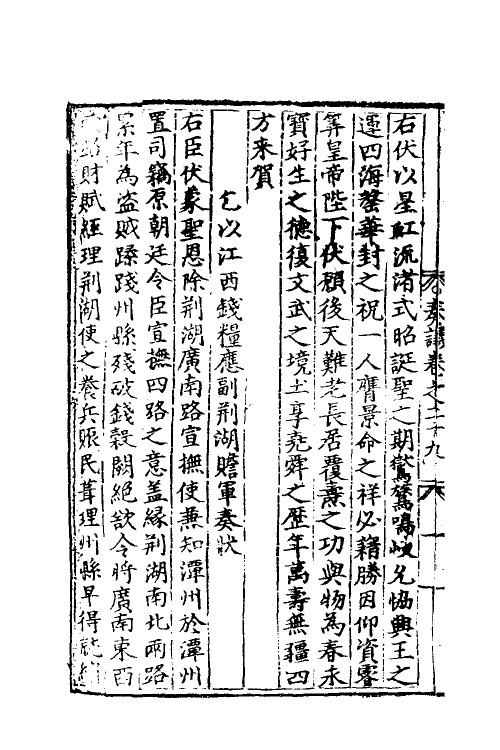 右伏以星虹流渚式昭誕聖之期鸑鷟鳴岐允協興王之
運四海馨華封之祝一人膺景命之祥必籍勝因仰資睿
筭皇帝陛下伏願後天難老長居覆燾之功與物為春永
寶好生之德復文武之境土享堯舜之歷年萬壽無疆四
方来賀
乞以江西錢糧應副荆湖贍軍奏狀
右臣伏蒙聖恩除荆湖廣南路宣撫使兼知潭州於潭州
置司竊原朝廷令臣宣撫四路之意盖緣荆湖南北兩路
累年為盗賊蹂踐州縣殘破錢穀闕絶欲令將廣南東西
財賦經理荆湖使之養兵賑民葺理州縣早得就緒
奏議卷之二十九